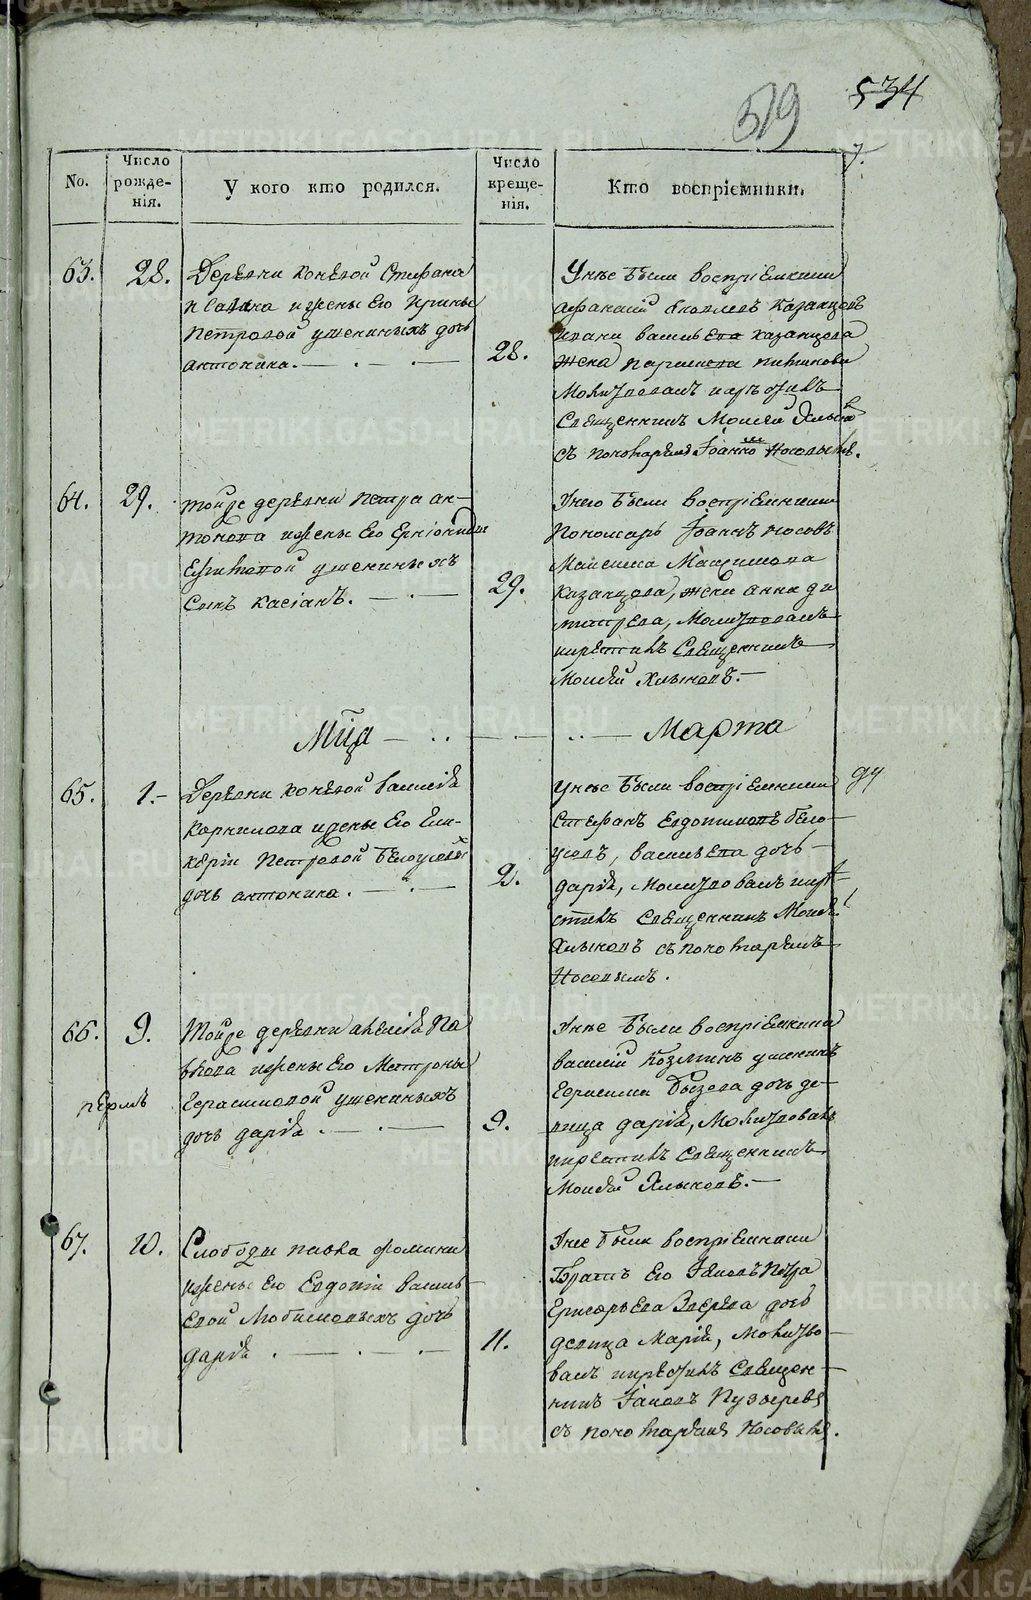 534
519
7.
No.
Число рожде-нія.
У кого кто родился.
Число креще-нія.
Кто воспріемники.
63. 28.
Деревни конѣвой Стефана
Исаака и жены Его Ирины
Петровой ушениныхъ дочь
антонина.
28.
Унѣе были воспріемники
афанасій Яковлевъ Казанцовъ
ивана васильева казанцова
жена
Молитвовалъ
Священникъ Моисей Хлыновъ
съ пономаремъ Іоанномъ Носовымъ.
64. 29.
тойже деревни Петра ан-
тонова и жены Его
ушениныхъ
сынъ касіанъ.
29.
Унего были воспріемники
Пономарь Іоаннъ носовъ
Максима Максимова
Казанцова, жена анна ди
митрева, Молитвовалъ
икрестилъ Священникъ
Моисей Хлыновъ.
Мца Марта
65. 1.
Деревни конѣвой василія
корнилова и жены Его Гли-
керіи Петровой бѣлоусовой
дочь антонина.
2.
унѣе были воспріемники
Стефанъ Евдокимовъ бѣло-
усовъ, васильева дочь
дарія, молитвовалъ икре-
стилъ Священникъ Моисей
Хлыновъ съ пономаремъ
Носовымъ.
ду
66. 9.
Тойже деревни алексія Па
влова и жены Его Матроны
Герасимовой ушениныхъ
дочь дарія
пермъ
9.
Унѣе были воспріемники
василій Козминъ ушенинъ
Герасима дочь де-
вица дарія, Молитвовалъ
икрестилъ Священникъ
Моисей Хлыновъ.
67. 10.
Слободы павла фомина
и жены Его Евдокіи василь-
евой Любимовыхъ дочь
дарія
11.
Унее были воспріемники
Братъ Его Іаковъ Петра
Григорьева Зверева дочь
девица Марія, Молитво-
валъ икрестилъ Священ-
никъ Іаковъ Пузыревъ
съ пономаремъ Носовымъ.
METRIKI.GASO-URAL.RU